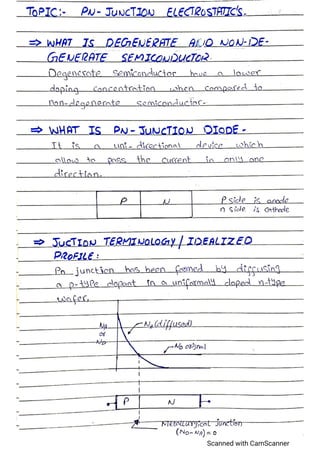 TOPIC:- PN-JUNCTION ELECTROSTATIC'S.
⇒ WHAT IS DEGENERATE AND NON-DE-
GENERATE SEMICONDUCTOR
Degenerate semiconductor have a lower
doping concentration when compared to
non-degenerate semiconductor.
⇒ WHAT IS PN-JUNCTION DIODE-
It is a uni-directional device which
allow to pass the current in only one
direction.
P N
P side is anode
n side is Cathode
⇒ JUCTION TERMINOLOGY / IDEALIZED
PROFILE:
Pn junction has been formed by diffusing
a p-type dopant in a uniformaly doped n-type
wafer.
NA
or
ND
NA (diffused)
P N
Metallurgical Junction
(ND-NA)=0
Scanned with CamScanner